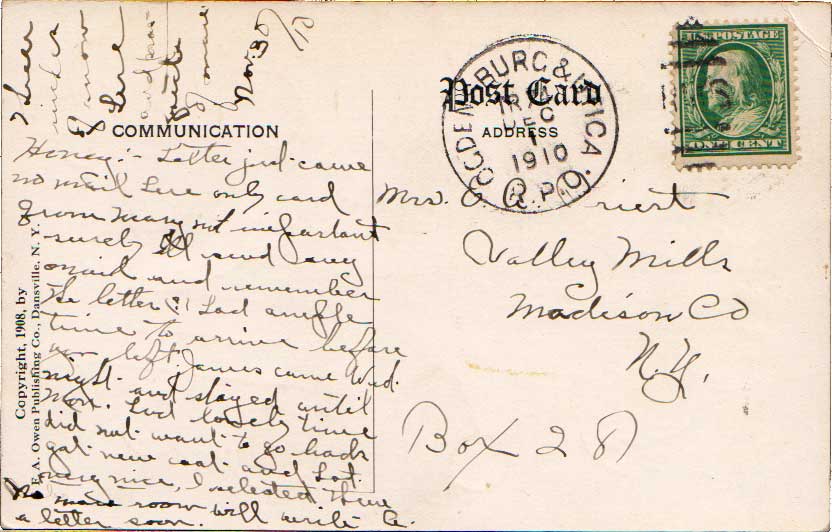 Nov. 30/10
of snow
here
of mail
COMMUNICATION
Post Card
ADDRESS
OGDENSBURG & UTICA
DEC
1
1910
R.P.O.
U.S. POSTAGE
ONE CENT
Honey:- Letter just came
no mail here only card
from Mary not important
surely I'll send any
mail and remember
The letter had ample
time to arrive before
you left. James came Wed.
night and stayed until
Mon. Had lovely time
did not want to go back
got new coat and hat
very nice, I selected them
No more room will write
a letter soon.
Mrs. riest
Valley Mills
Madison Co
N.Y.
Box 28
Copyright, 1908, by
F. A. Owen Publishing Co., Dansville, N. Y.